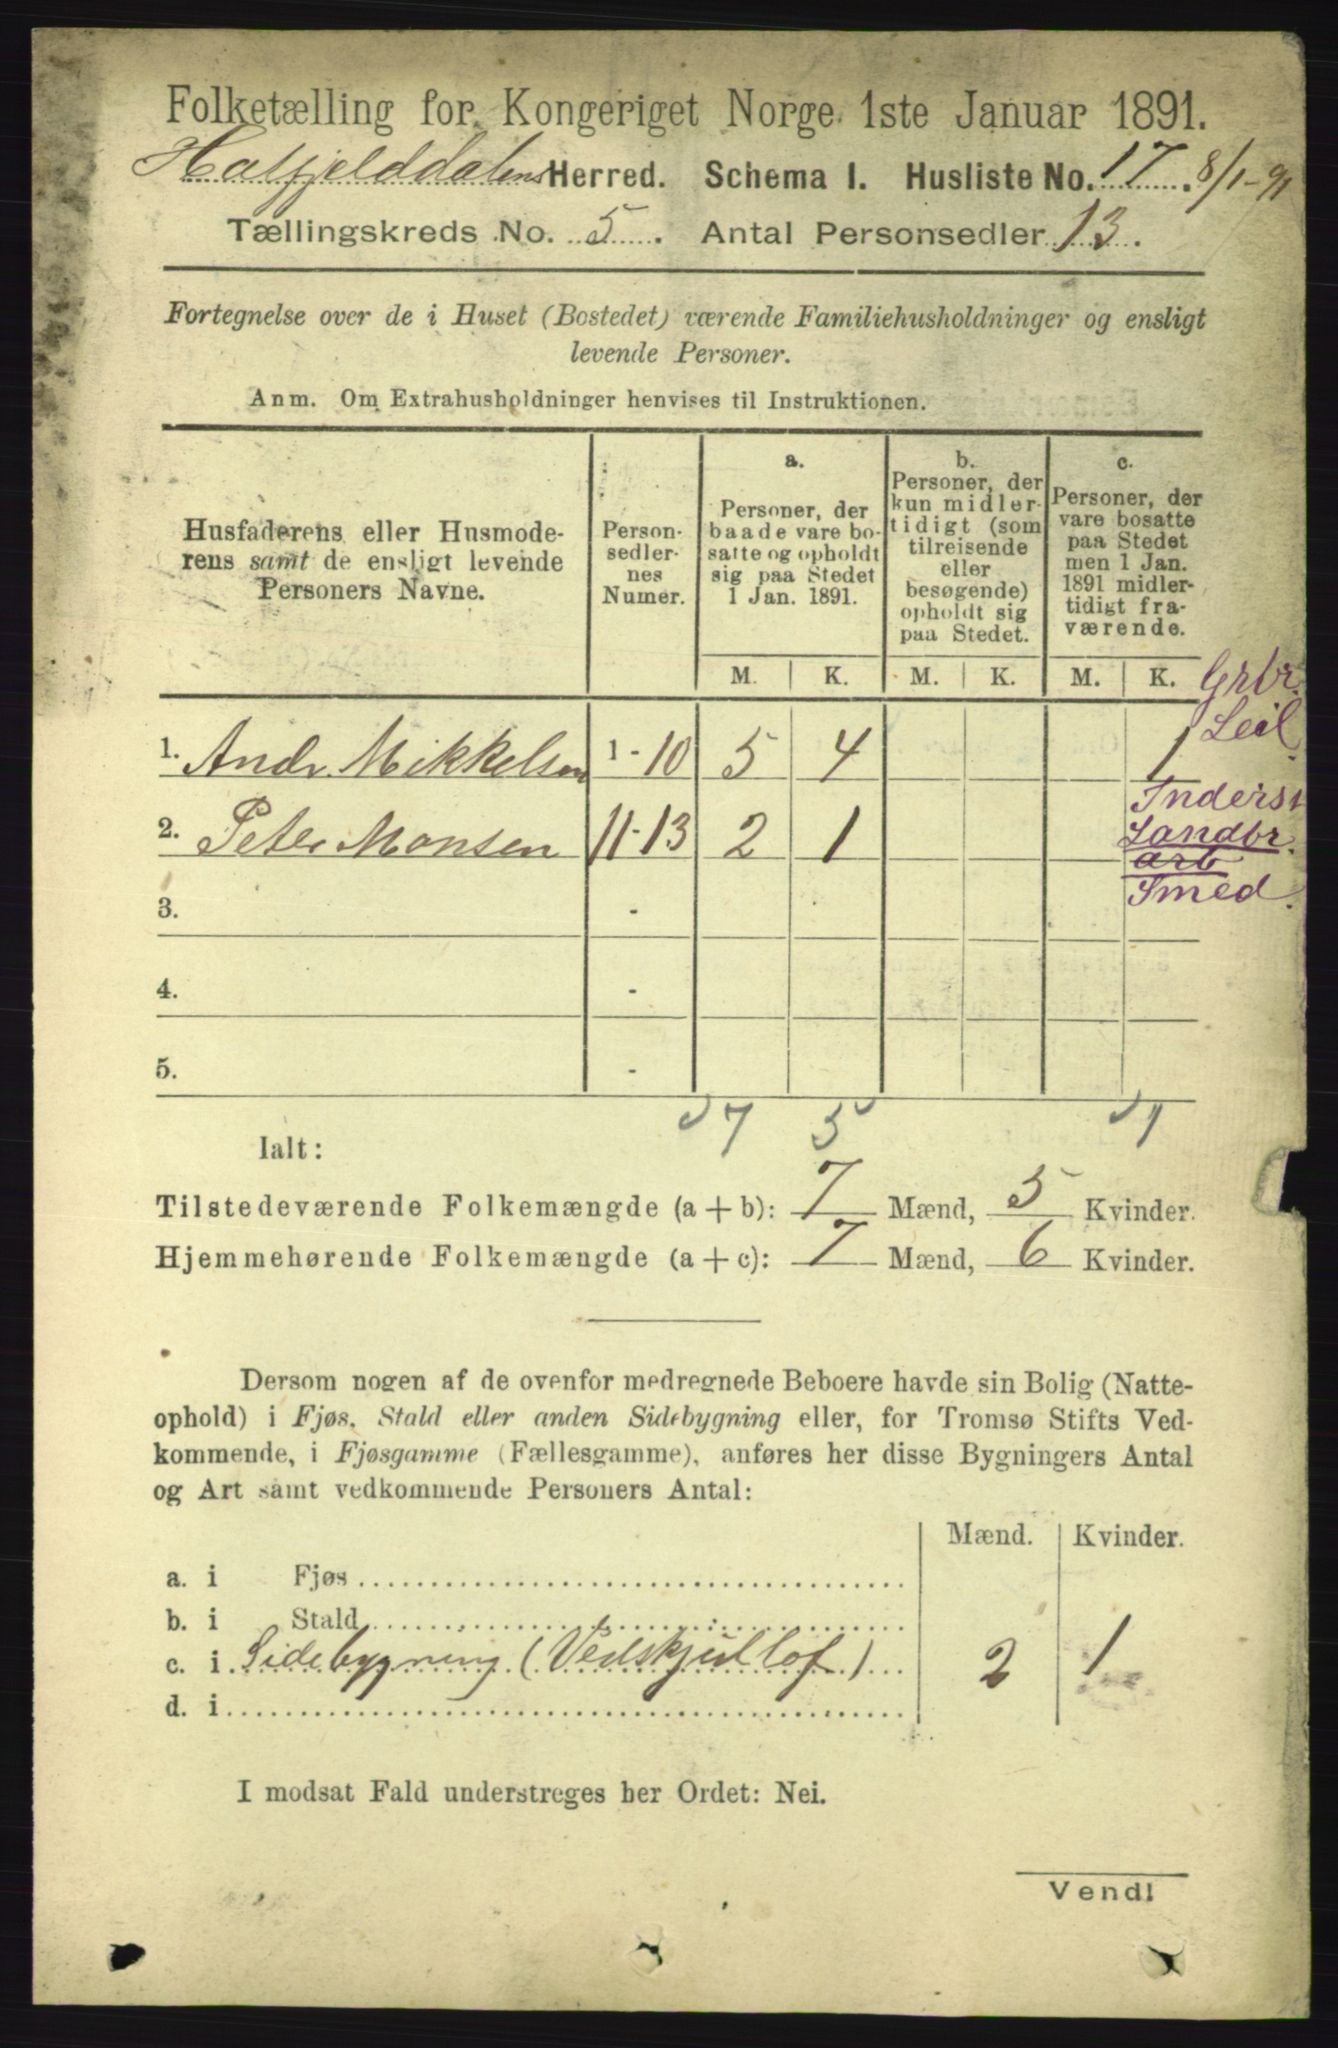 Folketælling for Kongeriget Norge 1ste Januar 1891.
Hatfjelddalens Herred. Schema I. Husliste No. 17. 8/1-91
Tællingskreds No. 5. Antal Personsedler 13.
Fortegnelse over de i Huset (Bostedet) værende Familiehusholdninger og ensligt
levende Personer.
Anm. Om Extrahusholdninger henvises til Instruktionen.
Husfaderens eller Husmode-
rens samt de ensligt levende
Personers Navne.
Person-
sedler-
nes
Numer.
a.
Personer, der
baade vare bo-
satte og opholdt
sig paa Stedet
1 Jan. 1891.
b.
Personer, der
kun midler-
tidigt (som
tilreisende
eller
besøgende)
opholdt sig
paa Stedet.
c.
Personer, der
vare bosatte
paa Stedet
men 1 Jan.
1891 midler-
tidigt fra-
værende.
M. K. M. K. M. K. Grbr.
Leil.
1. Andr Mikkelsen 1-10 5 4 1
Inderst
2. Peter Monsen 11-13 2 1 Landbr.
arb
Smed.
3. -
4. -
5. -
7 5 1
Ialt:
Tilstedeværende Folkemængde (a + b): 7 Mænd, 5 Kvinder.
Hjemmehørende Folkemængde (a + c): 7 Mænd, 6 Kvinder.
Dersom nogen af de ovenfor medregnede Beboere havde sin Bolig (Natte-
ophold) i Fjøs, Stald eller anden Sidebygning eller, for Tromsø Stifts Ved-
kommende, i Fjøsgamme (Fællesgamme), anføres her disse Bygningers Antal
og Art samt vedkommende Personers Antal:
Mænd. Kvinder.
a. i Fjøs
b. i Stald
c. i Sidebygning (Vedskjullof) 2 1
d. i
I modsat Fald understreges her Ordet: Nei.
Vend!